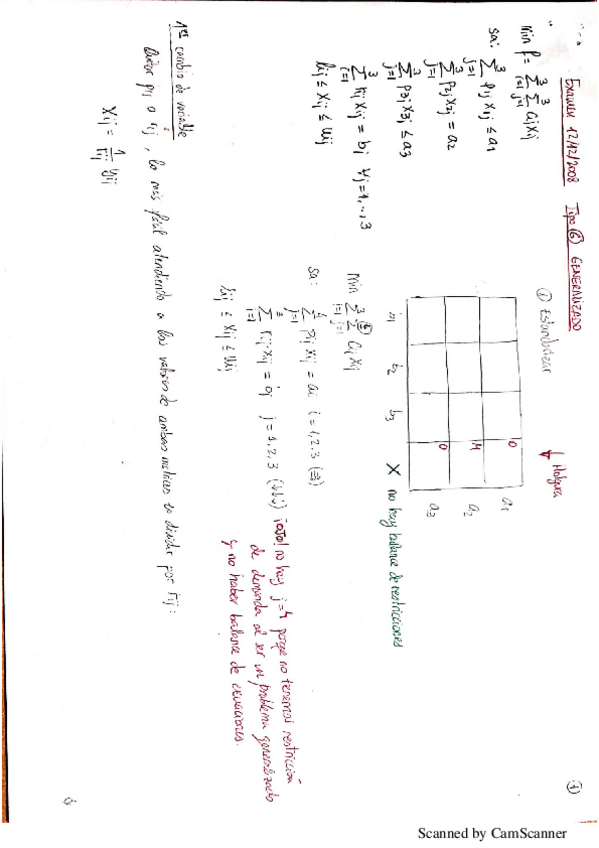 Examen 12/12/2008 Tipo ⑥ GENERALIZADO
①
Min f = Σ_{i=1}^{3} Σ_{j=1}^{3} Cij Xij
sa: Σ_{j=1}^{3} P1j X1j ≤ a1
Σ_{j=1}^{3} P2j X2j = a2
Σ_{j=1}^{3} P3j X3j ≤ a3
Σ_{i=1}^{3} rij Xij = bj ∀j = 1,..,3
lij ≤ Xij ≤ uij
① Estandarizar
↓ Holgura
0 a1
M a2
0 a3
b1 b2 b3 X no hay balance de restricciones
Min Σ_{i=1}^{3} Σ_{j=1}^{4} Cij Xij
sa: Σ_{j=1}^{4} Pij Xij = ai i = 1,2,3
Σ_{i=1}^{3} rij Xij = bj j = 1,2,3 ¡ojo! no hay j=4 porque no tenemos restricción
de demanda al ser un problema generalizado
y no haber balance de ecuaciones.
lij ≤ Xij ≤ uij
1er cambio de variable
Quitar pij o rij, lo más fácil atendiendo a los valores de ambas matrices es dividir por rij:
Xij = 1/rij yij
Scanned by CamScanner